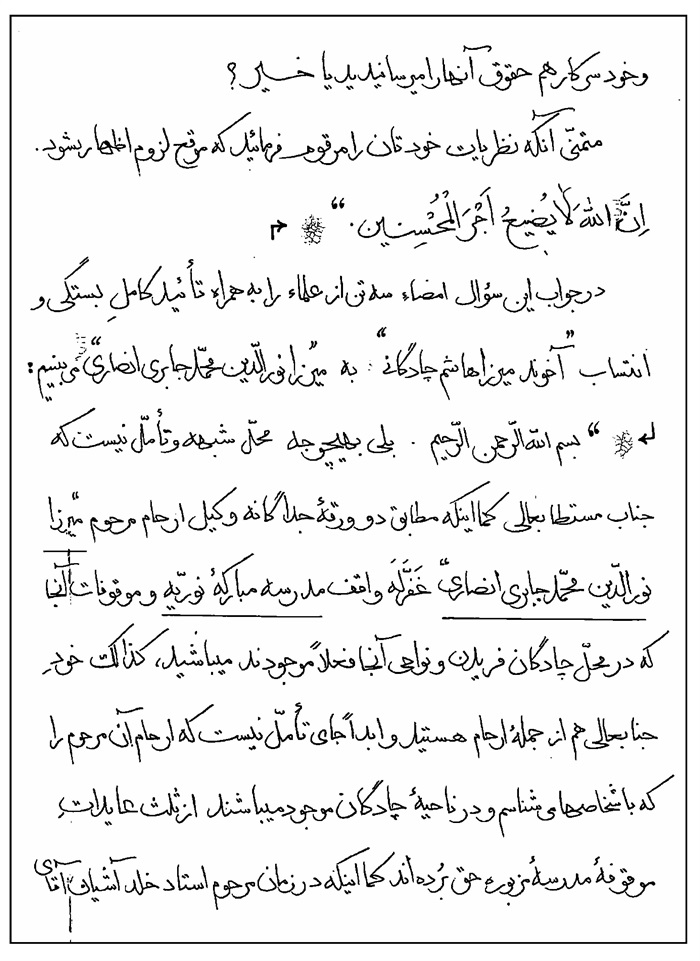 و خود سرکار هم حقوق آنها را میرسانیدید یا خیر؟
متمنّی آنکه نظریات خودتان را مرقوم فرمائید که موقع لزوم اظهار بشود.
اِنَّ اللهَ لایُضیعُ اَجْرَ الْمُحْسِنین.“
در جواب این سؤال امضاء سه تن از علماء را به همراه تأئید کاملِ بستگی و
انتساب ”آخوند میرزا هاشم چادگانی“ به میرزا نورالدّین محمّد جابری انصاری می بینیم:
“ بسم الله الرّحمن الرّحیم . بلی بهیچوجه محلّ شبهه و تأمّل نیست که
جناب مستطابعالی کما اینکه مطابق دو ورقهٔ جداگانه وکیل ارحام مرحوم میرزا
نورالدّین محمّد جابری انصاری غَفَرَلَه واقف مدرسه مبارکهٔ نوریّه و موقوفات آنجا
که در محلّ چادگان فریدن و نواحی آنجا فعلاً موجودند میباشید، کذالک خودِ
جنابعالی هم از جملهٔ ارحام هستید و ابداً جای تأمّل نیست که ارحام آن مرحوم را
که باشخاصها می شناسم و در ناحیهٔ چادگان موجود میباشند از ثلث عایداتِ
موقوفهٔ مدرسهٔ مزبوره حق بُرده اند کما اینکه در زمان مرحوم استاد خلد آشیان آقای